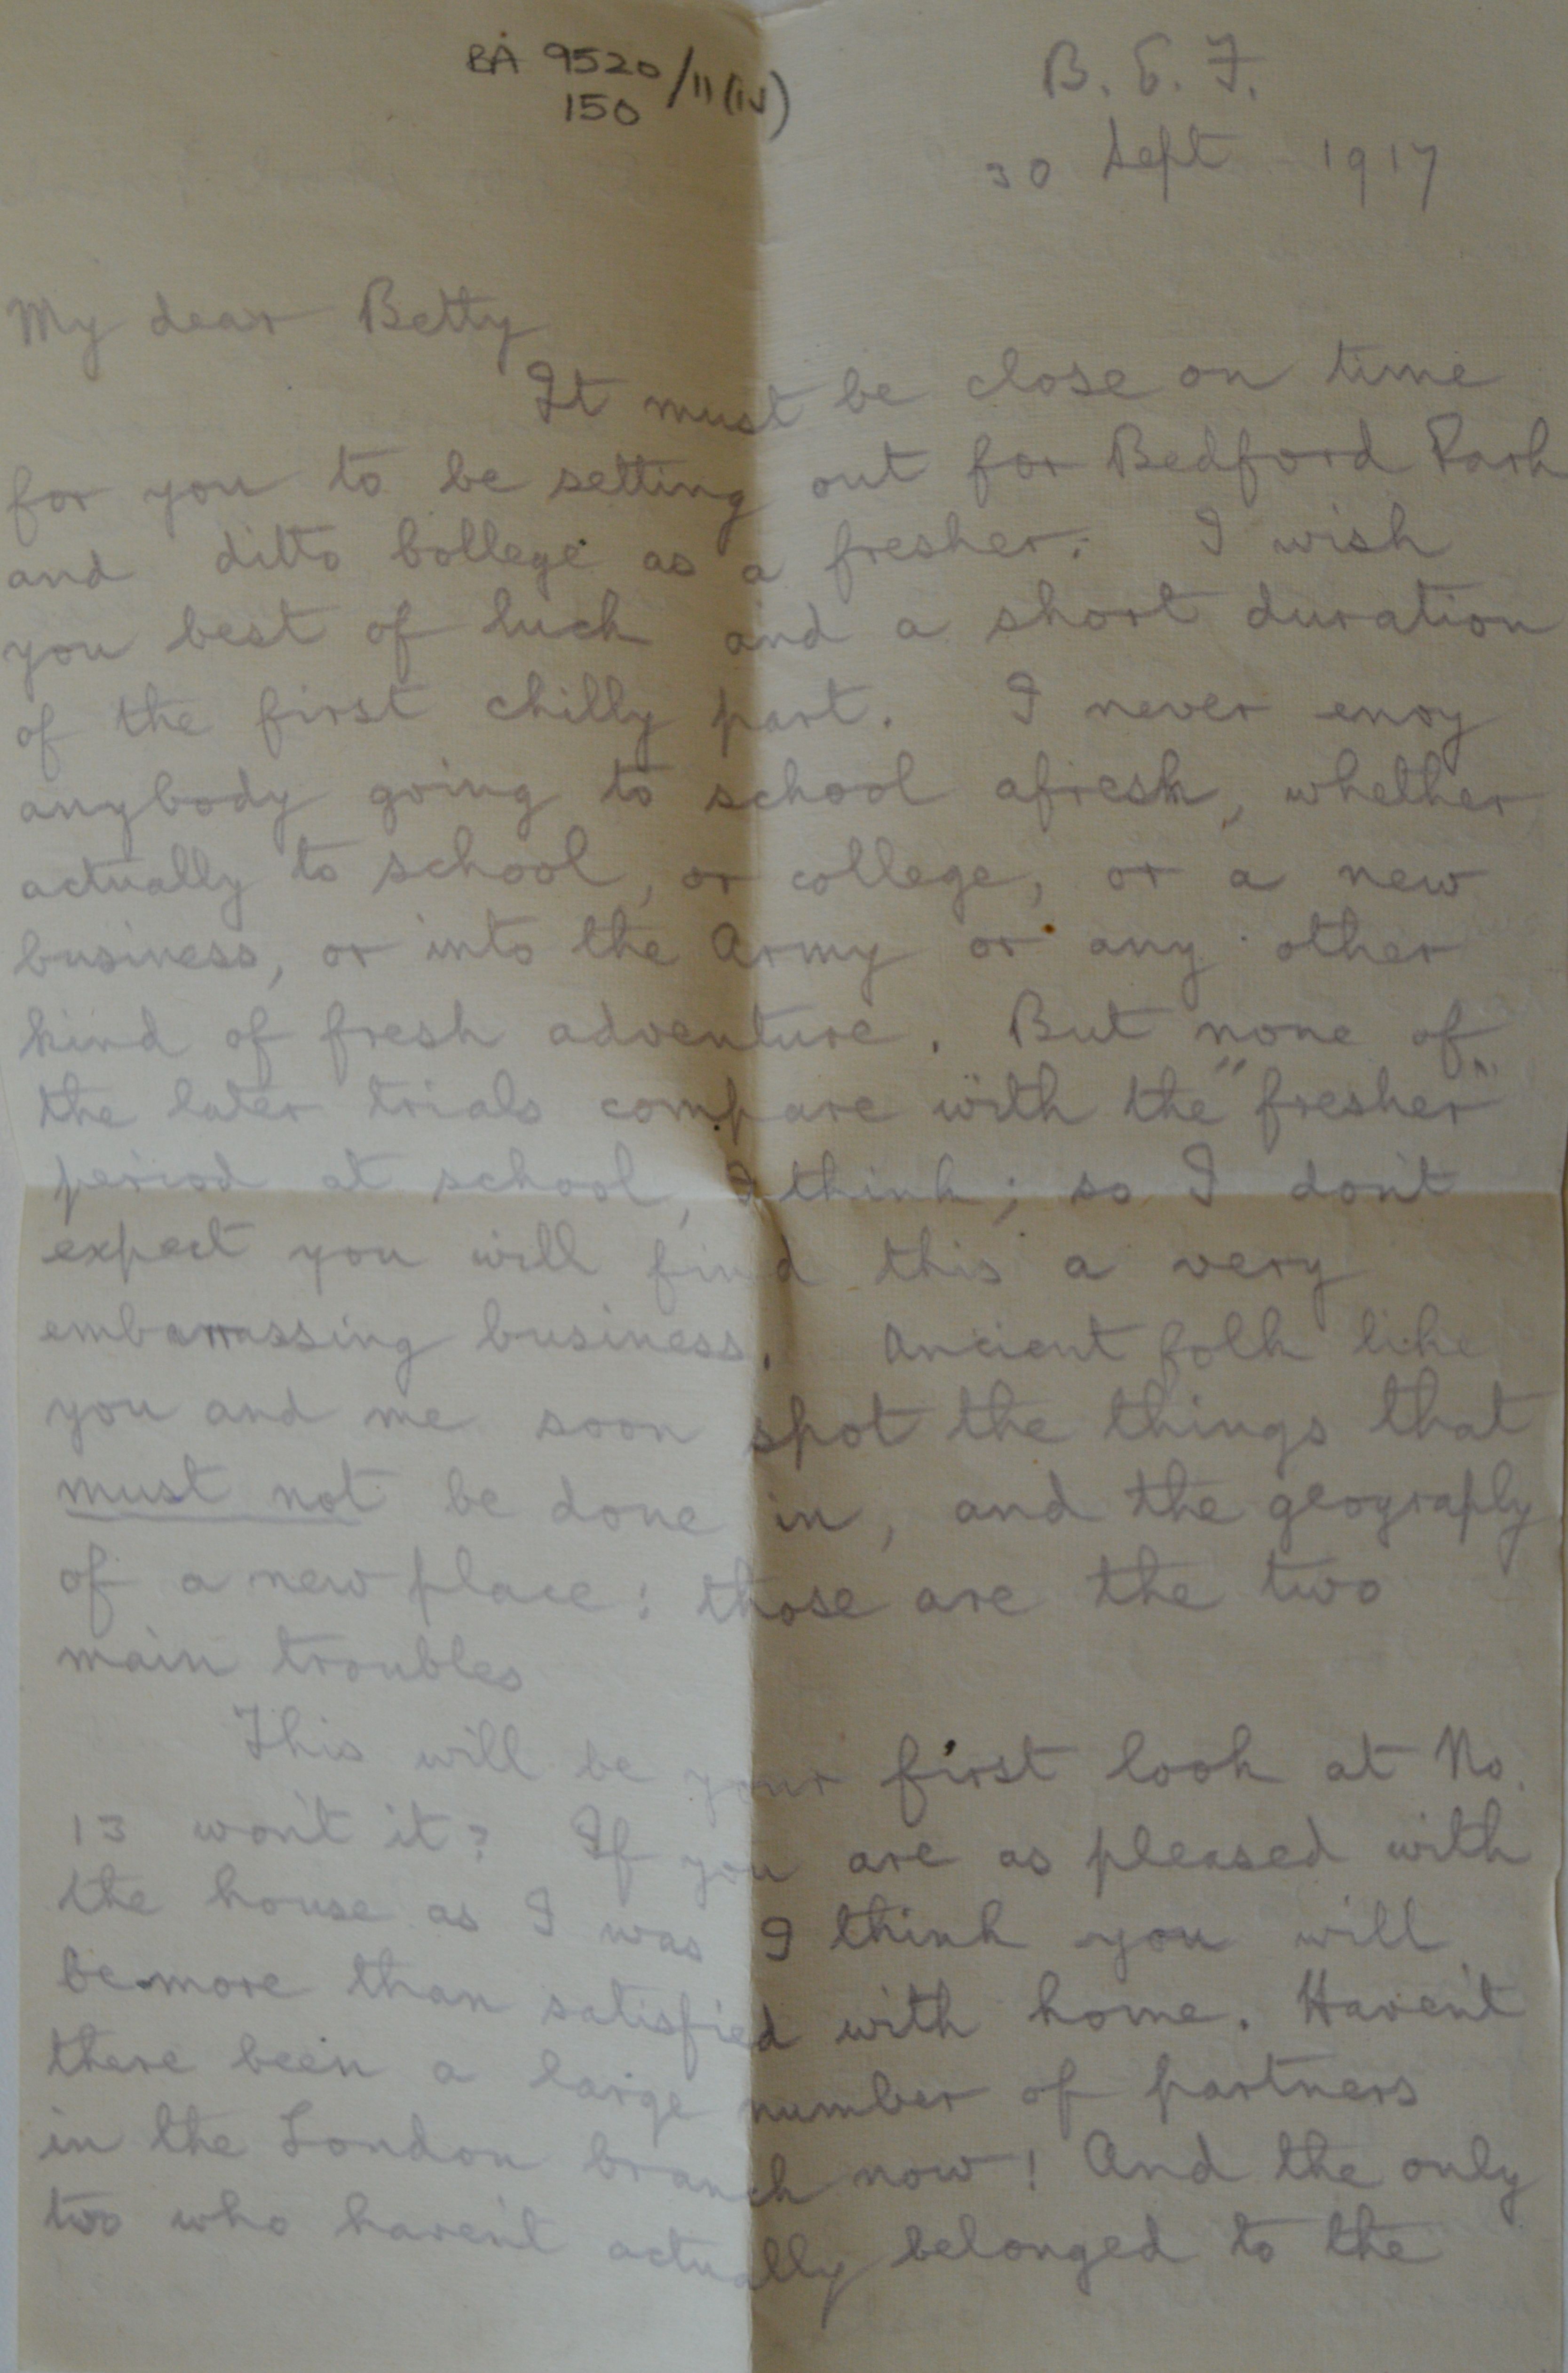 BA 9520/11(iv)
150
B. E. F.
30 Sept 1917
My dear Betty
It must be close on time
for you to be setting out for Bedford Park
and ditto College as a fresher. I wish
you best of luck and a short duration
of the first chilly part. I never envy
anybody going to school afresh, whether
actually to school, or college, or a new
business, or into the Army or any other
kind of fresh adventure. But none of
the later trials compare with the "fresher"
period at school, I think; so I don't
expect you will find this a very
embarrassing business. Ancient folk like
you and me soon spot the things that
must not be done in, and the geography
of a new place: those are the two
main troubles
This will be your first look at No.
13 won't it? If you are as pleased with
the house as I was I think you will
be more than satisfied with home. Haven't
there been a large number of partners
in the London branch now! And the only
two who haven't actually belonged to the